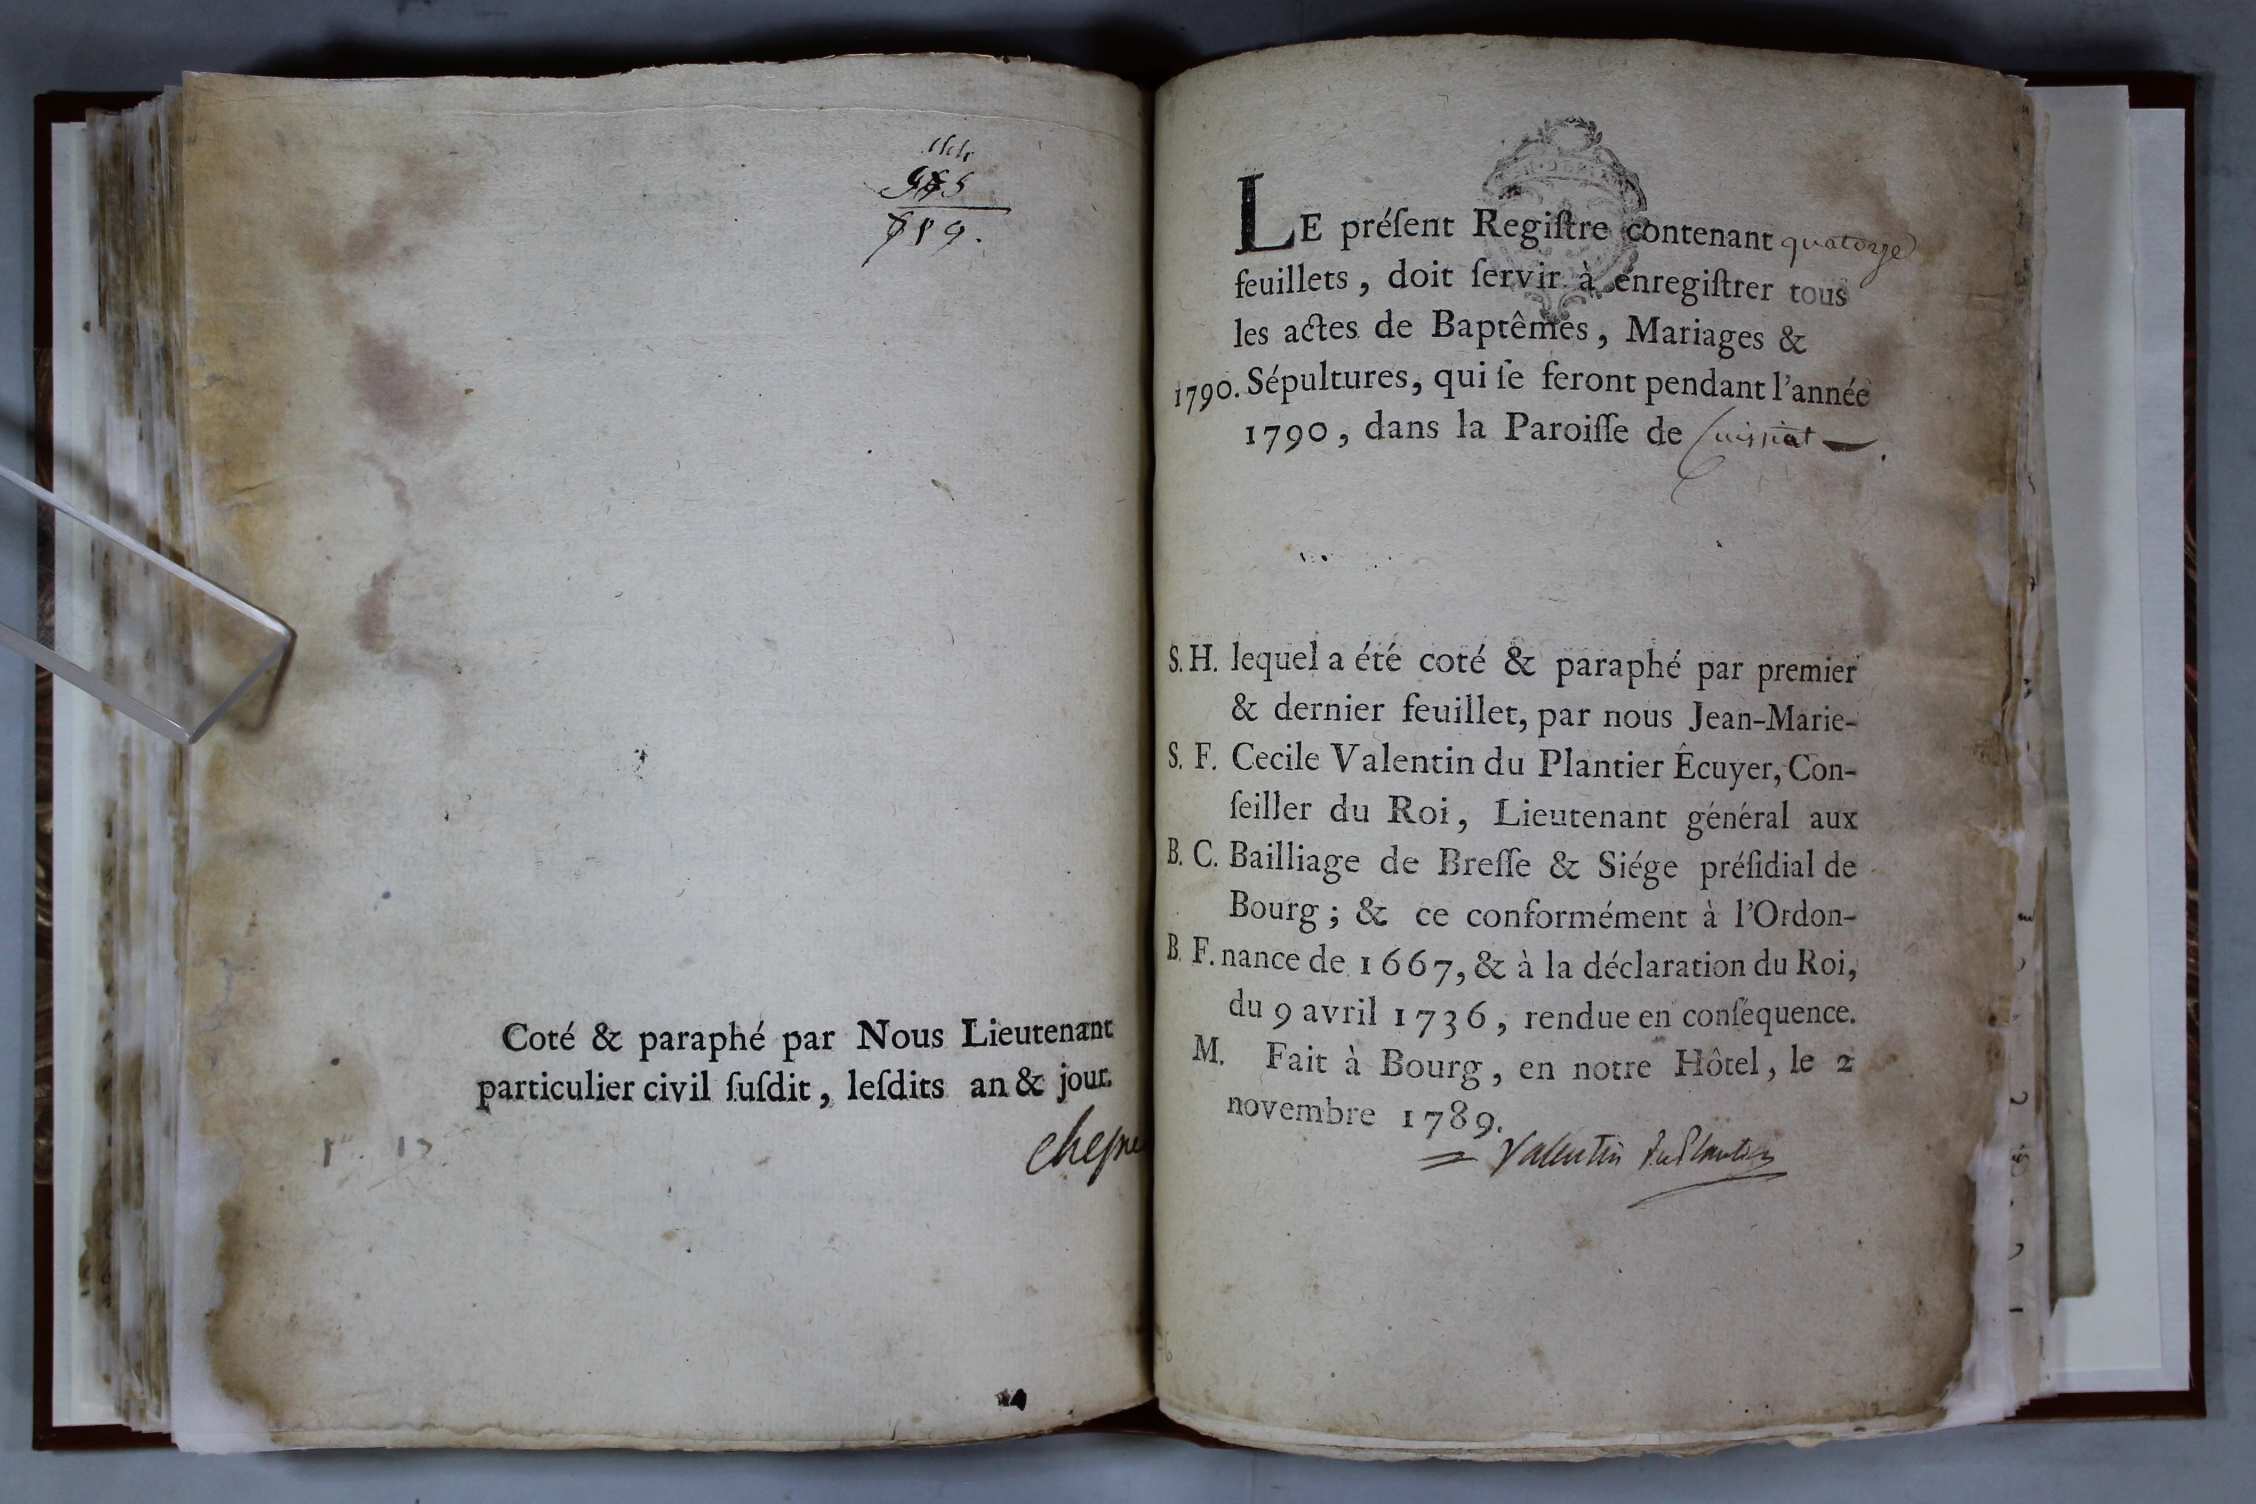 Coté & paraphé par Nous Lieutenant
particulier civil ſuſdit, leſdits an & jour.
LE préſent Regiſtre contenant quatorze
feuillets, doit ſervir à enregiſtrer tous
les actes de Baptêmes, Mariages &
1790. Sépultures, qui ſe feront pendant l'année
1790, dans la Paroiſſe de Cuissiat
S. H. lequel a été coté & paraphé par premier
& dernier feuillet, par nous Jean-Marie-
S. F. Cecile Valentin du Plantier Êcuyer, Con-
ſeiller du Roi, Lieutenant général aux
B. C. Bailliage de Breſſe & Siége préſidial de
Bourg; & ce conformément à l'Ordon-
B. F. nance de 1667, & à la déclaration du Roi,
du 9 avril 1736, rendue en conſéquence.
M. Fait à Bourg, en notre Hôtel, le 2
novembre 1789.
Valentin duPlantier